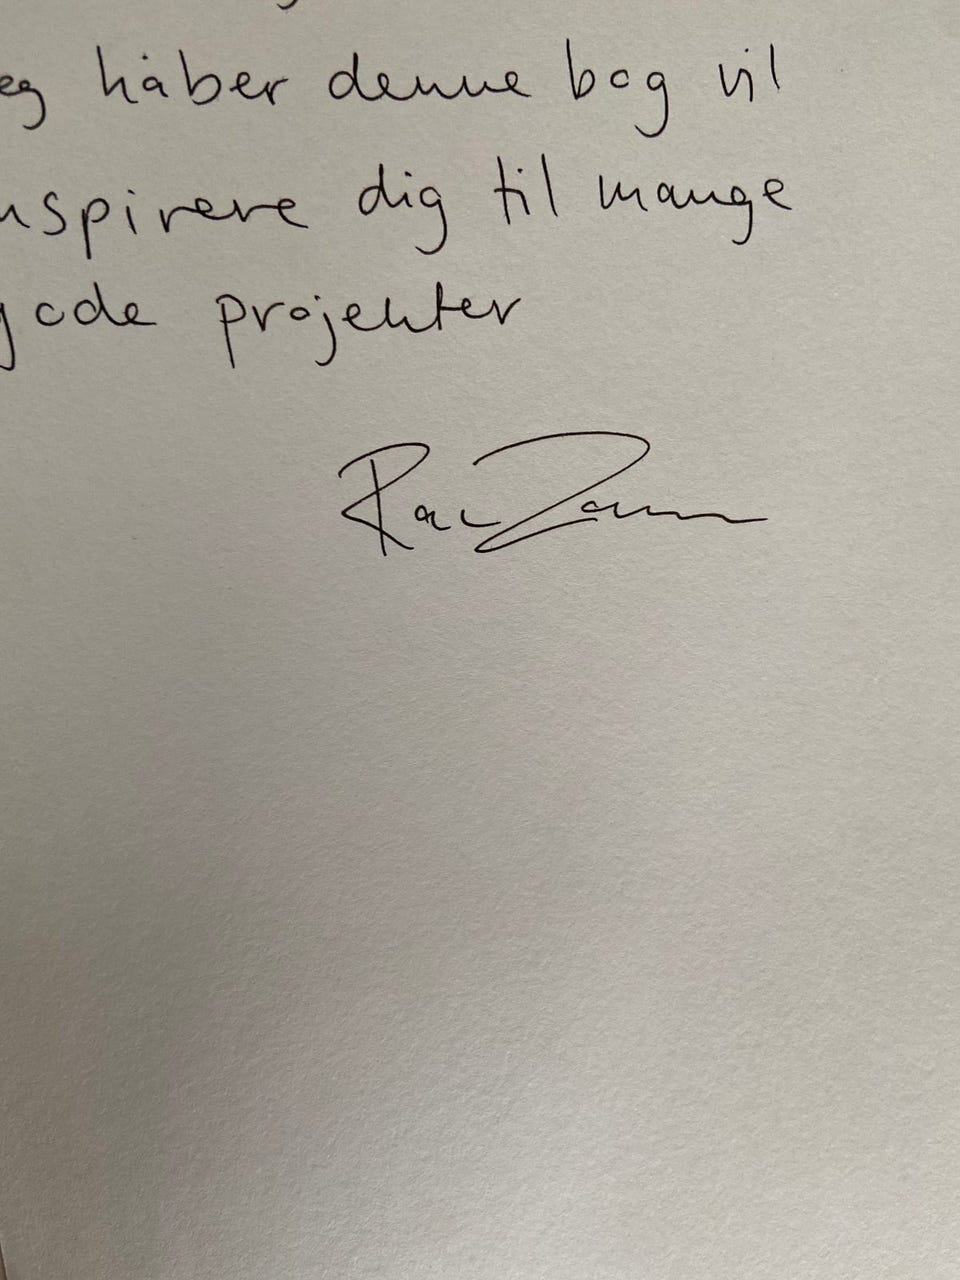 eg håber denne bog vil
nspirere dig til mange
gode projekter